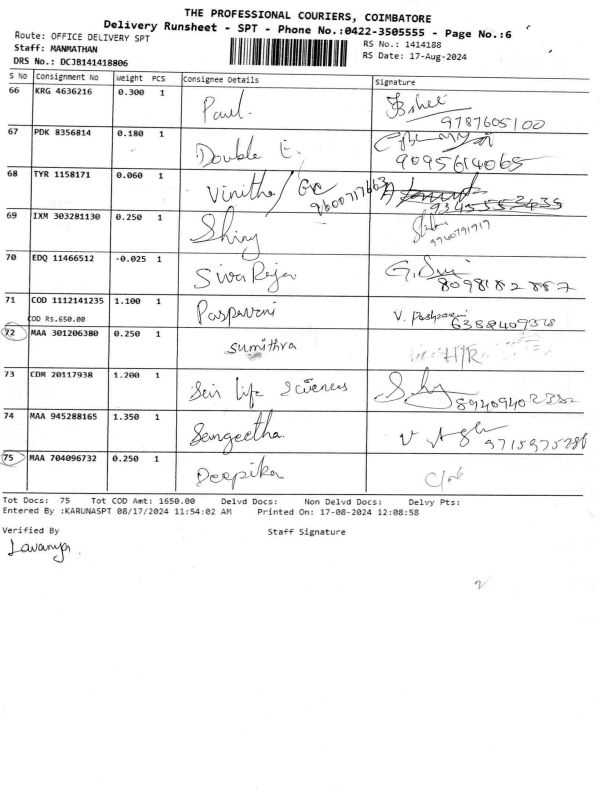 THE PROFESSIONAL COURIERS, COIMBATORE
Delivery Runsheet - SPT - Phone No.:0422-3505555 - Page No.:6
Route: OFFICE DELIVERY SPT
RS No.: 1414188
Staff: MANMATHAN
RS Date: 17-Aug-2024
DRS No.: DCJB141418806
S No Consignment No Weight PCS Consignee Details Signature
66 KRG 4636216 0.300 1 Paul
9787605100
67 PDK 8356814 0.180 1 Double E.
9095614065
68 TYR 1158171 0.060 1 Vinitha/
9600717663
69 IXM 303281130 0.250 1 Shiny
9740791917
70 EDQ 11466512 -0.025 1 Siva Raja
8098182887
71 COD 1112141235 1.100 1 Paspavani V.
COD Rs.650.00 6382409378
72 MAA 301206380 0.250 1 Sumithra
73 CDM 20117938 1.200 1 Sai life Sciences
89409402382
74 MAA 945288165 1.350 1 Sangeetha
9715975286
75 MAA 704096732 0.250 1 Deepika
Tot Docs: 75 Tot COD Amt: 1650.00 Delvd Docs: Non Delvd Docs: Delvy Pts:
Entered By :KARUNASPT 08/17/2024 11:54:02 AM Printed On: 17-08-2024 12:08:58
Verified By Staff Signature
Lavanya.